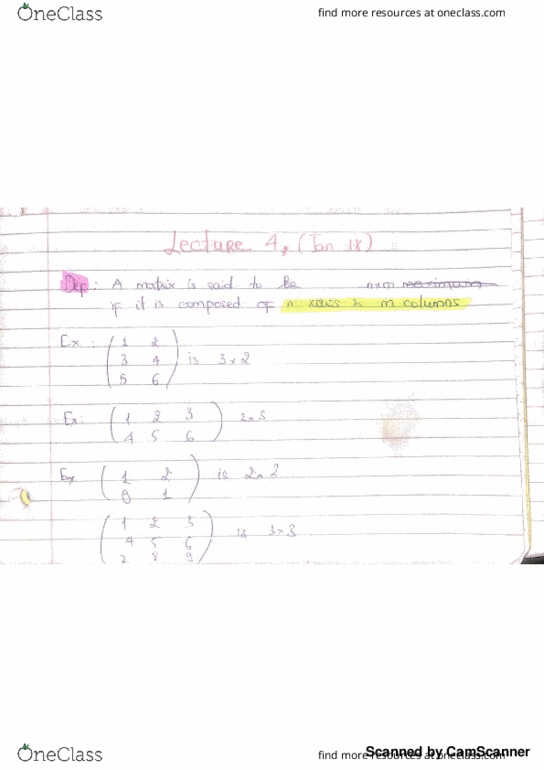 OneClass
find more resources at oneclass.com
Lecture 4, (Jan 18)
Def: A matrix is said to be n×m maximum
if it is composed of n rows & m columns
Ex: (1 2
3 4
5 6) is 3×2
Ex: (1 2 3
4 5 6) 2×3
Ex (1 2
0 1) is 2×2
(1 2 3
4 5 6
7 8 9) is 3×3
OneClass
find more resources at oneclass.com
Scanned by CamScanner